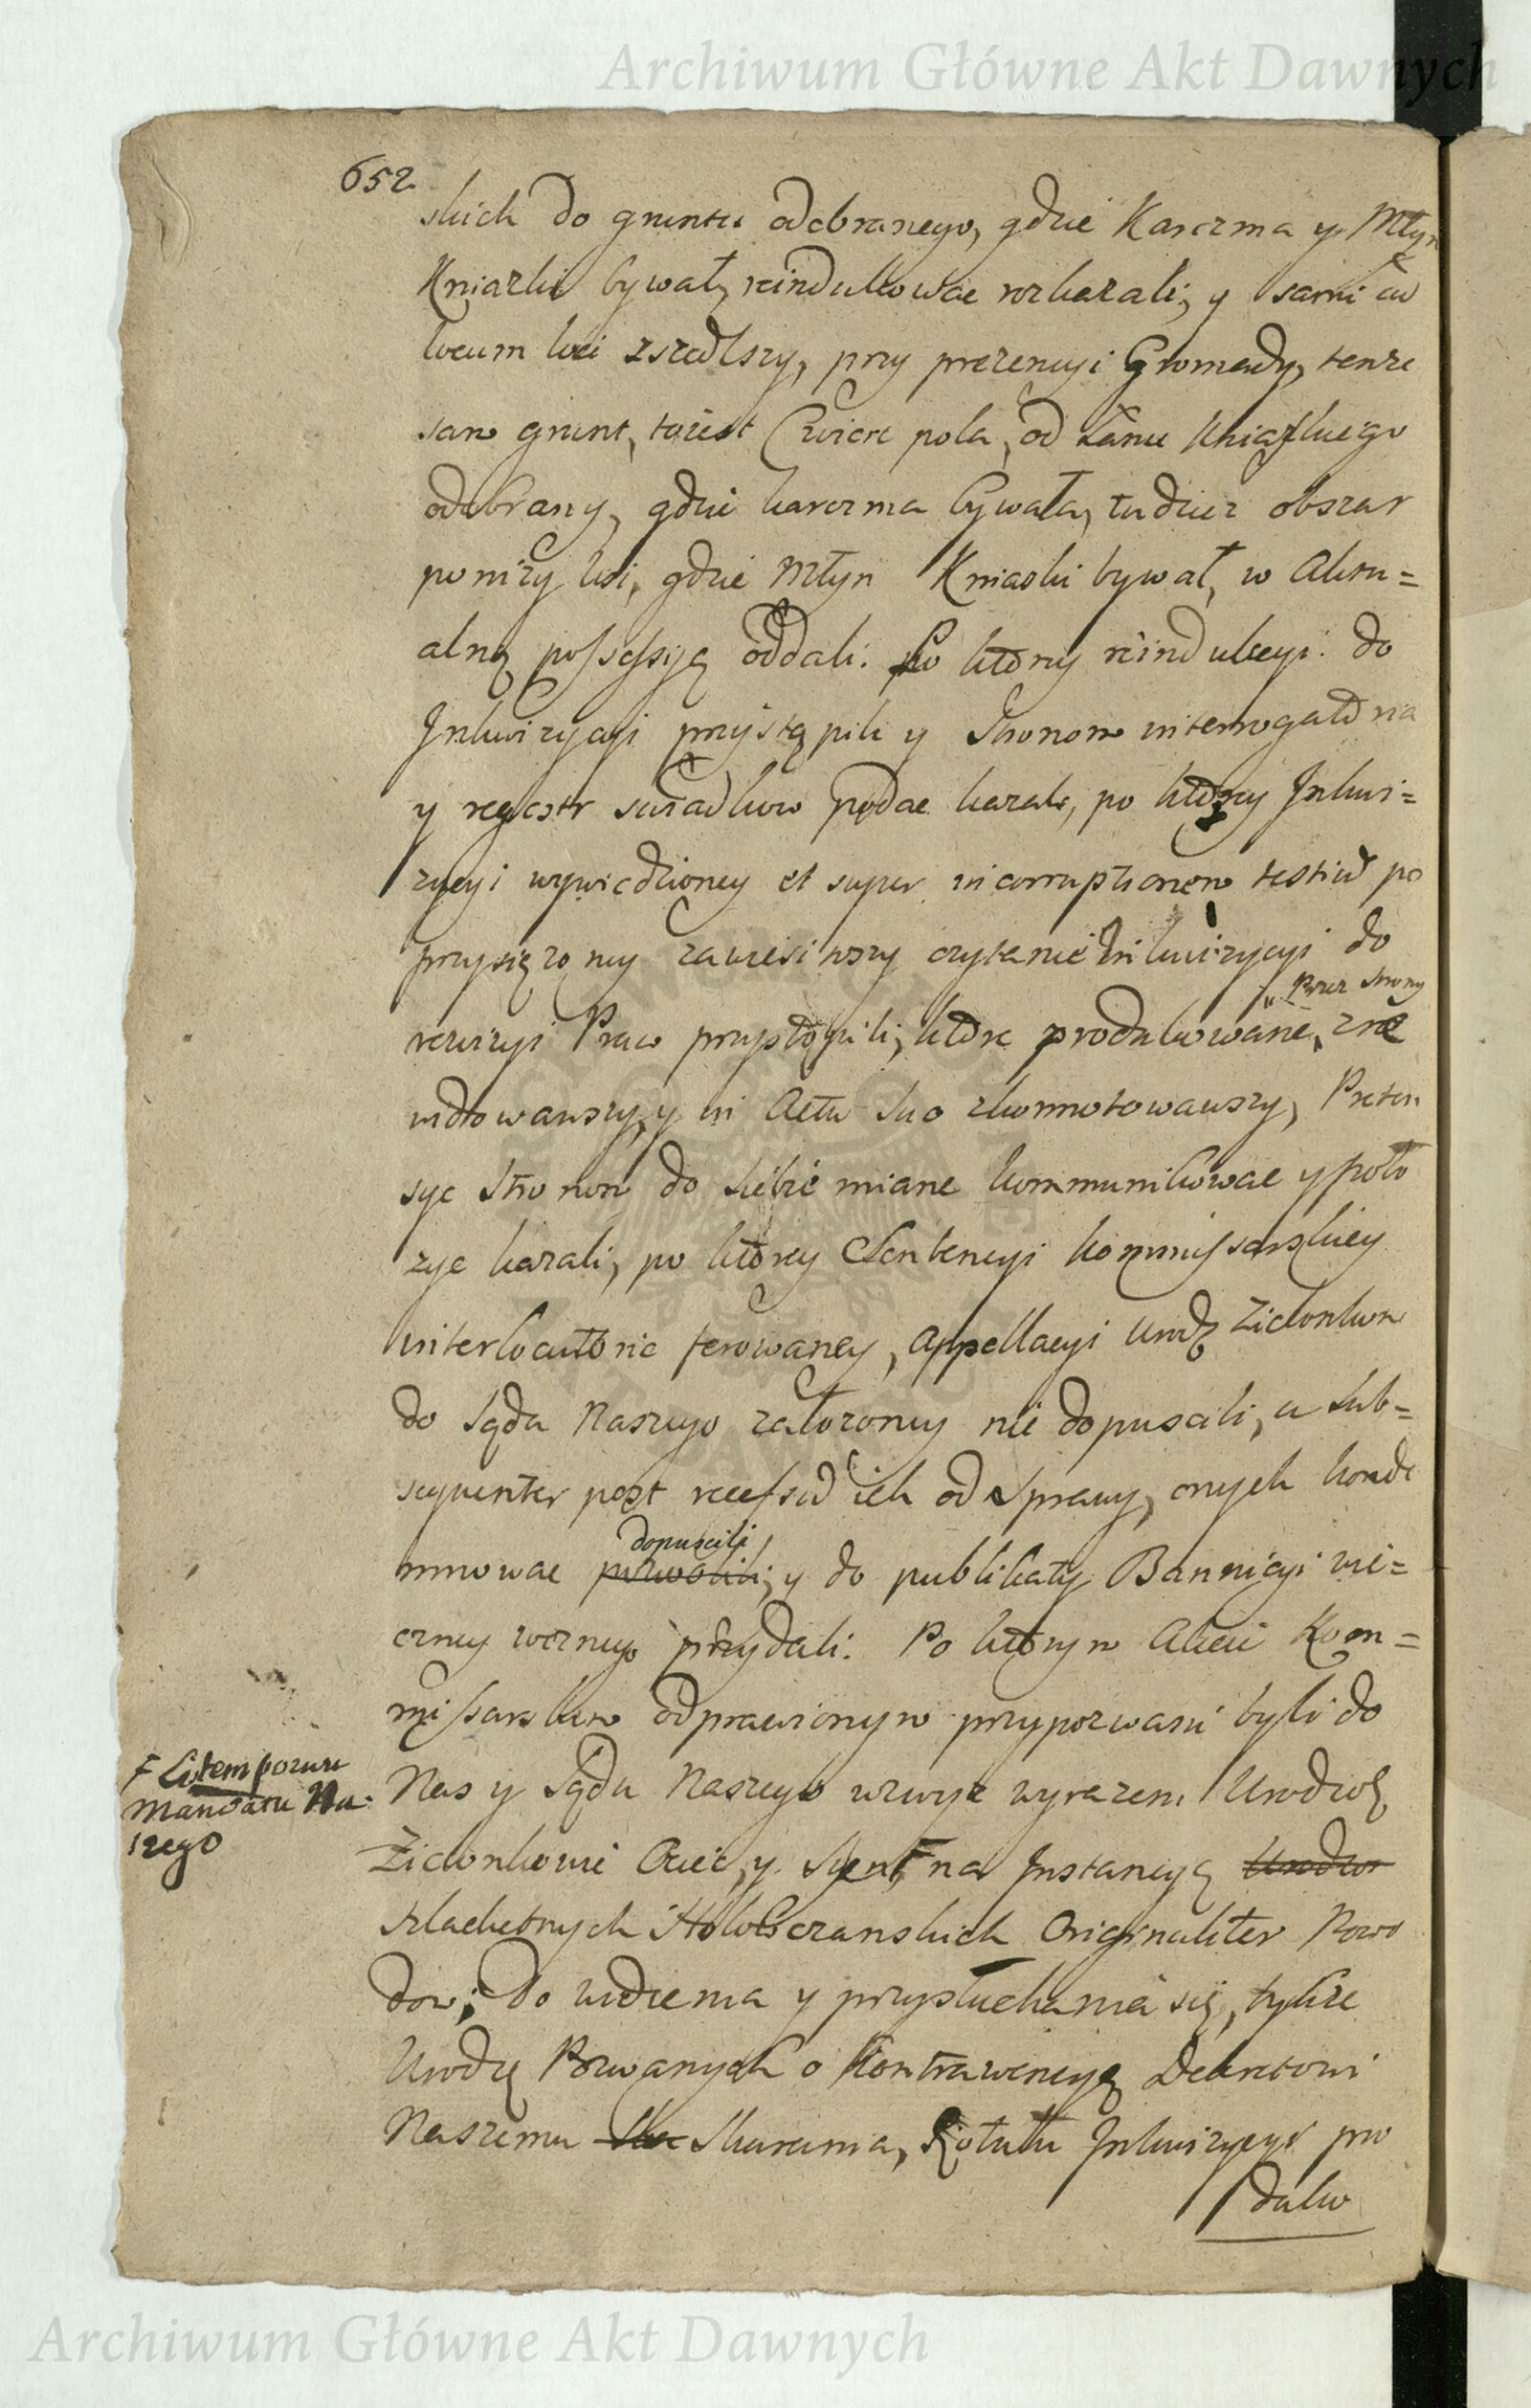 Archiwum Główne Akt Dawnych
652
skich do gruntu odebranego, gdzie Karczma y Młyn
Kniazki bywał, reindukować roskazali, y sami ad
locum loci zszedłszy, przy prezencyi Gromady, tenże
sam grunt, toiest Cwierć pola, od Łanu Kniaskiego
odebrany, gdzie karczma bywała, tudzież obszar
poniży wsi, gdzie Młyn Kniaski bywał, w Aktu=
alną possessyą oddali. Po ktory reindukcyi do
Inkwizycyi przystąpili y Stronom interrogatoria
y regestr swiadkow podać kazali, po ktorey Inkwi=
zycyi wywiedzioney et super incorruptionem testium po
przysięzony zawiesiwszy czytanie Inkwizycyi do
rewizyi Praw przystąpili, ktore produkowane, przez strony zre
widowawszy, y in Actu suo zkonnotowawszy, Preten
sye Stronom do siebie miane kommunikować y poło
zyć kazali, po ktorey Sentencyi kommissarskiey
interlocutorie ferowaney, Appellacyi Urodz Zielonkom
do Sądu Naszego założoney nie dopuscili, a sub=
sequenter post recessum ich od Sprawy, onych konde
mnować pozwolili dopuscili, y do publikaty Bannicyi wie=
czney woznego przydali. Po ktorym Akcie Kom=
missarskim odprawionym przypozwani byli do
Nas y Sądu Naszego wzwyż wyrażeni Urodzo
Zielonkowie Ociec, y Syn, F na Instancyą Urodzo
F Listem pozwu
Mandatu Na=
szego
szlachetnych Hołobczanskich Originaliter Powo
dow; do widzenia y przysłuchania się, tychże
Urodz Pozwanych o kontrawencyą Dekretowi
Naszemu Ska Skarania, Rotułu Inkwizycyi pro
duko
Archiwum Główne Akt Dawnych